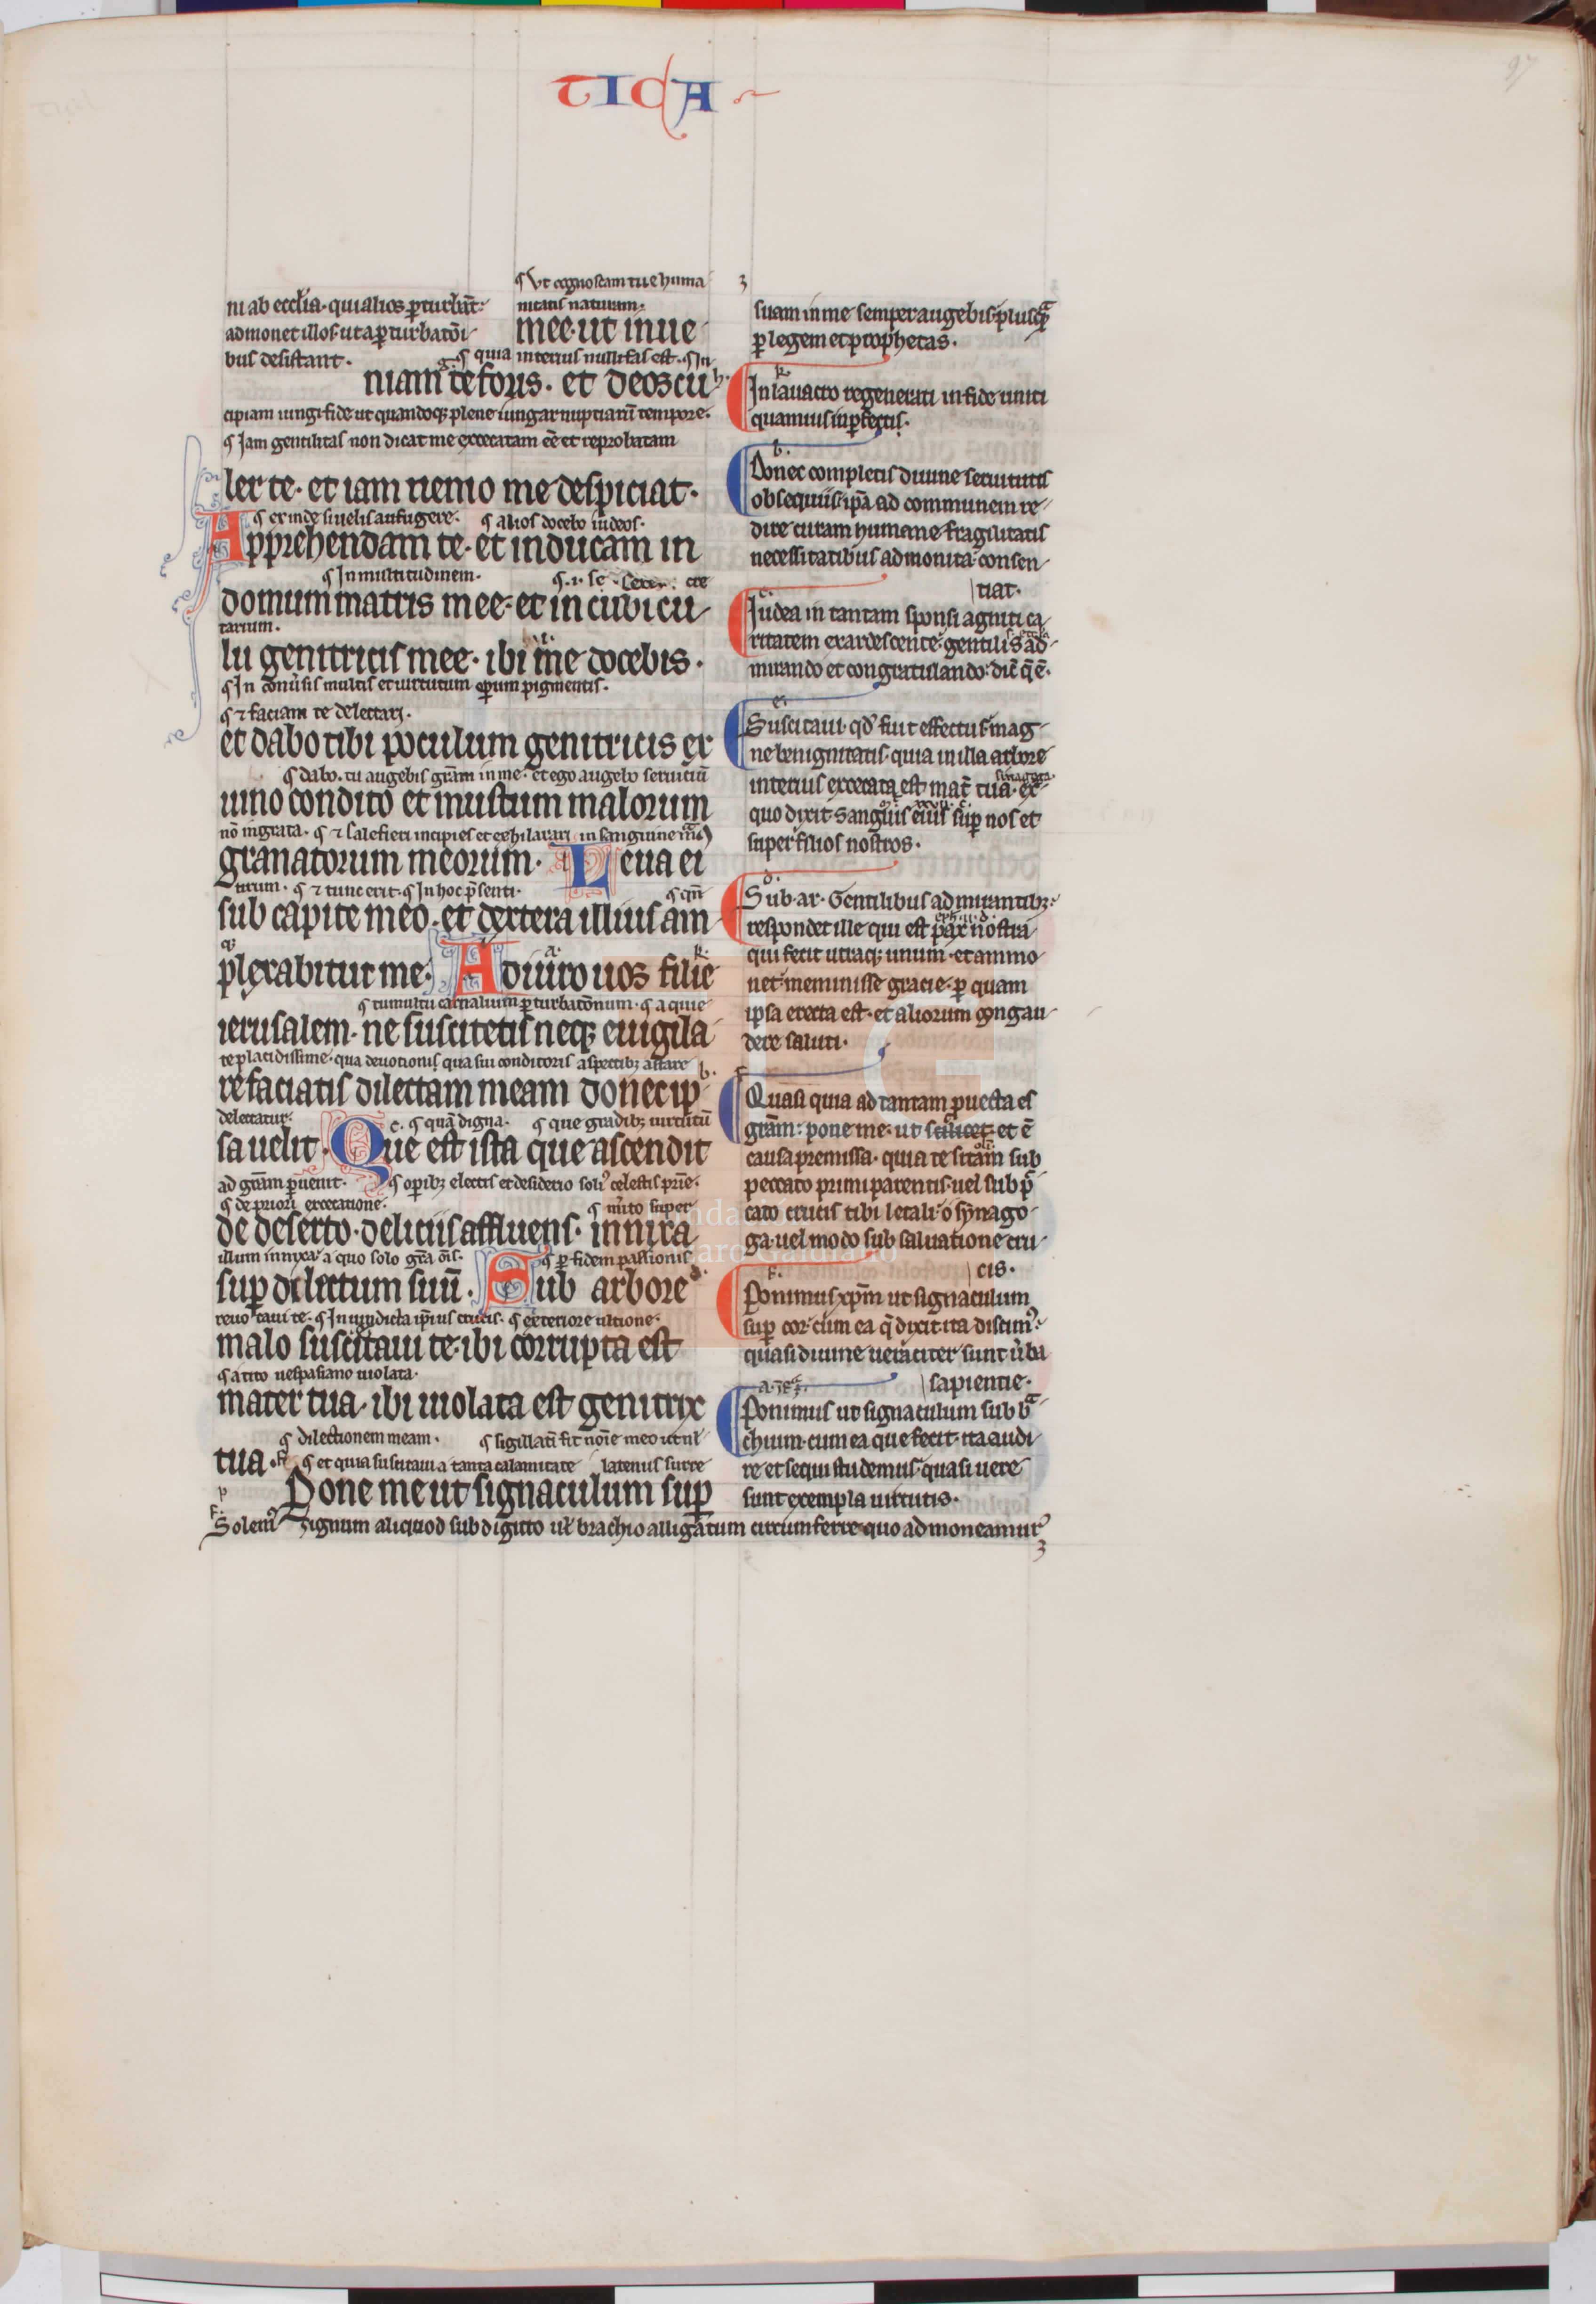 TICA
97
ni ab ecclīa· qui alios ꝑturbāt·
admonet illos· ut a ꝑturbatōi
bus desistant·
¶ Vt cognoscam tue huma
nitatis naturam·
mee· ut inue
¶ quia interius nulli fas est· ¶ In
niam te foris· et deoscu
cipiam iungi fide ut quandoqꝫ plene iungar nuptiarū tempore·
¶ Iam gentilitas non dicat me excecatam eē et reprobatam
ler te· et iam nemo me despiciat·
¶ exinde si uelis aufugere· ¶ alios docebo iudeos·
Apprehendam te· et inducam in
¶ In multitudinem·
domum matris mee· et in cubicu
tarium·
lū genitricis mee· ibi me docebis·
¶ In conūsis multis et uirtutum oꝑum pigmentis·
¶ ⁊ faciam te delectari·
et dabo tibi poculum genitricis ex
¶ dabo· tu augebis grām in me· et ego augebo seruitiū
uino condito et mustum malorum
nō ingrata· ¶ ⁊ calefieri incipies et exhilarari in sanguine
granatorum meorum· Leua ei
¶ ⁊ tunc erit· ¶ In hoc p̄senti·
sub capite meo· et dextera illius am
plexabitur me· Adiuro uos filie
¶ tumultu carnalium ꝑturbatōnum· ¶ a quie
ierusalem· ne suscitetis neqꝫ euigila
te placidissime· qua deuotionis qua sui conditoris aspectibꝫ astare
re faciatis dilectam meam donec ip
delectatur·
c· ¶ quā digna· ¶ que gradibꝫ uirtutū
sa uelit· Que est ista que ascendit
ad grām ꝑuenit· ¶ oꝑibꝫ electis et desiderio soliꝰ celestis pr̄ie·
¶ de priori excecatione· ¶ mīto super
de deserto· deliciis affluens· innixa
illum innixa· a quo solo grā ōis· ¶ ꝑ fidem passionis
suꝑ dilectum suū· Sub arbore
reuocaui te· ¶ In uindicta ipīus crucis· ¶ exteriore ultione·
malo suscitaui te· ibi corrupta est
¶ a tito uespasiano uiolata·
mater tua· ibi uiolata est genitrix
¶ dilectionem meam· ¶ sigillatū sit noīe meo ut nul
tua·
¶ et quia suscitaui a tanta calamitate latenus surre
Pone me ut signaculum suꝑ
Solemꝰ signum aliquod sub digito uł brachio alligatum circumferre quo admoneamurꝰ
suam in me semper augebis· plusꝗ
ꝑ legem et prophetas·
k·
In lauacro regenerati in fide uniti
quamuis inꝑfectis·
b·
Donec completis diuine seruitutis
obsequiis· ipā ad communem re
dire curam humane fragilitatis
necessitatibus admonita· consen
tiat·
c·
Iudea in tantam sponsi agniti ca
ritatem exardescente· gentilis
mirando et congratulando· dic̄ q̄ ē·
e·
Suscitaui· qđ fuit effectus mag
ne benignitatis· quia in illa arbore
interius excecata est mat̄ tua· ex
quo dixit· sanguis eius suꝑ nos et
super filios nostros·
d·
Sub ar· Gentilibus admirantibꝫ·
respondet ille qui est pax nostra
qui fecit utraqꝫ unum· et ammo
net· meminisse gracie· ꝑ quam
ipsa erecta est· et aliorum congau
dere saluti·
Quasi quia ad tantam ꝓuecta es
grām· pone me· ut scilicet et ē
causa premissa· quia te suscitam sub
peccato primi parentis· uel sub
cato crucis tibi letali o synago
ga· uel modo sub saluatione cru
cis·
Ponimus xpm̄ ut signaculum
suꝑ cor· cum ea q̄ dixit· ita discimꝰ·
quasi diuine ueraciter sunt ūba
sapientie·
Ponimus ut signaculum sub
chium· cum ea que fecit· ita audi
re et sequi studemus· quasi uere
sunt exempla uirtutis·